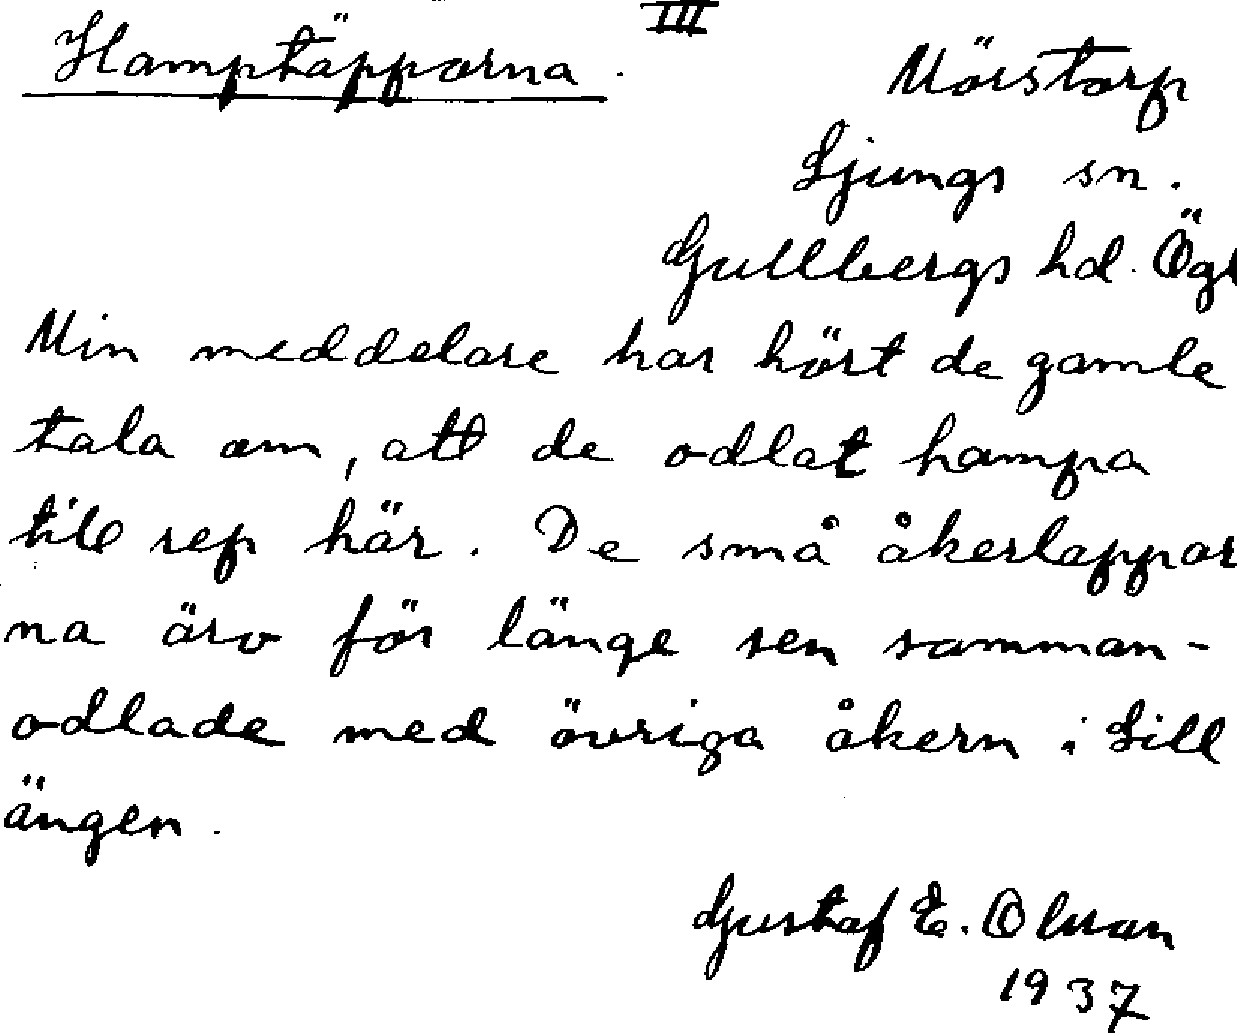 III
Hamptäpporna.
Mörstorp
Ljungs sn.
Gullbergs hd. Ögl
Min meddelare har hört de gamle
tala om, att de odlat hampa
till rep här. De små åkerlappar
na äro för länge sen samman-
odlade med övriga åkern i Lill
ängen.
Gustaf E. Olsson
1937